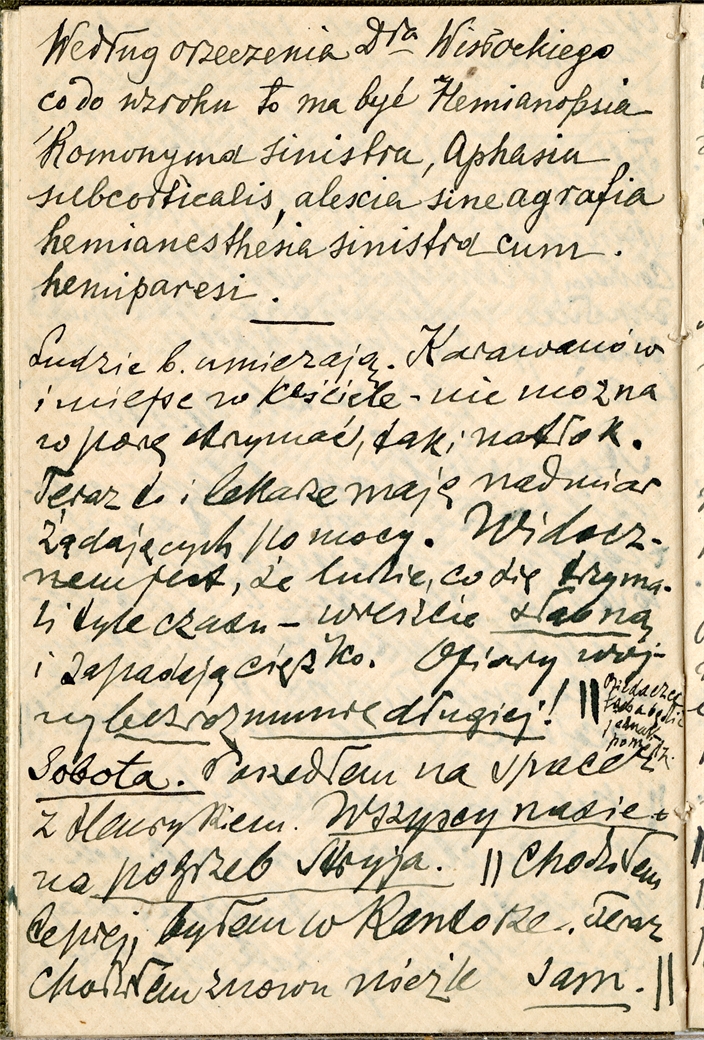 Według orzeczenia Dra Wisłockiego
co do wzroku to ma być Hemianopsia
Homonyma sinistra, Aphasia
subcorticalis, alexia sine agrafia
hemianesthesia sinistra cum
hemiparesi.
Ludzie b. umierają. Karawanów
i miejsc w kościele - nie można
w porę otrzymać, tak i natłok.
Teraz to i lekarze mają nadmiar
żądających pomocy. Widocz-
nem jest, że ludzie, co się trzyma-
li tyle czasu - wreszcie słabną
i zapadają ciężko. Ofiary woj-
ny bezrozumnie długiej! ||
Sobota. Poszedłem na spacer
z Henrykiem. Wszyscy nasi
na pogrzeb Stryja. || Chodziłem
lepiej, byłem w Kantorze. Teraz
chodziłem znowu nieźle sam. ||